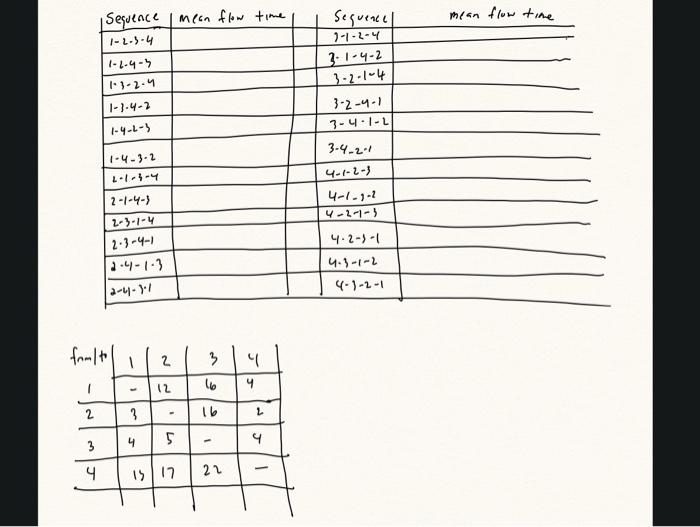 Sequence mean flow time Sequence mean flow time
1-2-3-4 3-1-2-4
1-2-4-3 3-1-4-2
1-3-2-4 3-2-1-4
1-3-4-2 3-2-4-1
1-4-2-3 3-4-1-2
1-4-3-2 3-4-2-1
2-1-3-4 4-1-2-3
2-1-4-3 4-1-3-2
2-3-1-4 4-2-1-3
2-3-4-1 4-2-3-1
2-4-1-3 4-3-1-2
2-4-3-1 4-3-2-1
from/to 1 2 3 4
1 - 12 16 4
2 3 - 16 2
3 4 5 - 4
4 15 17 22 -